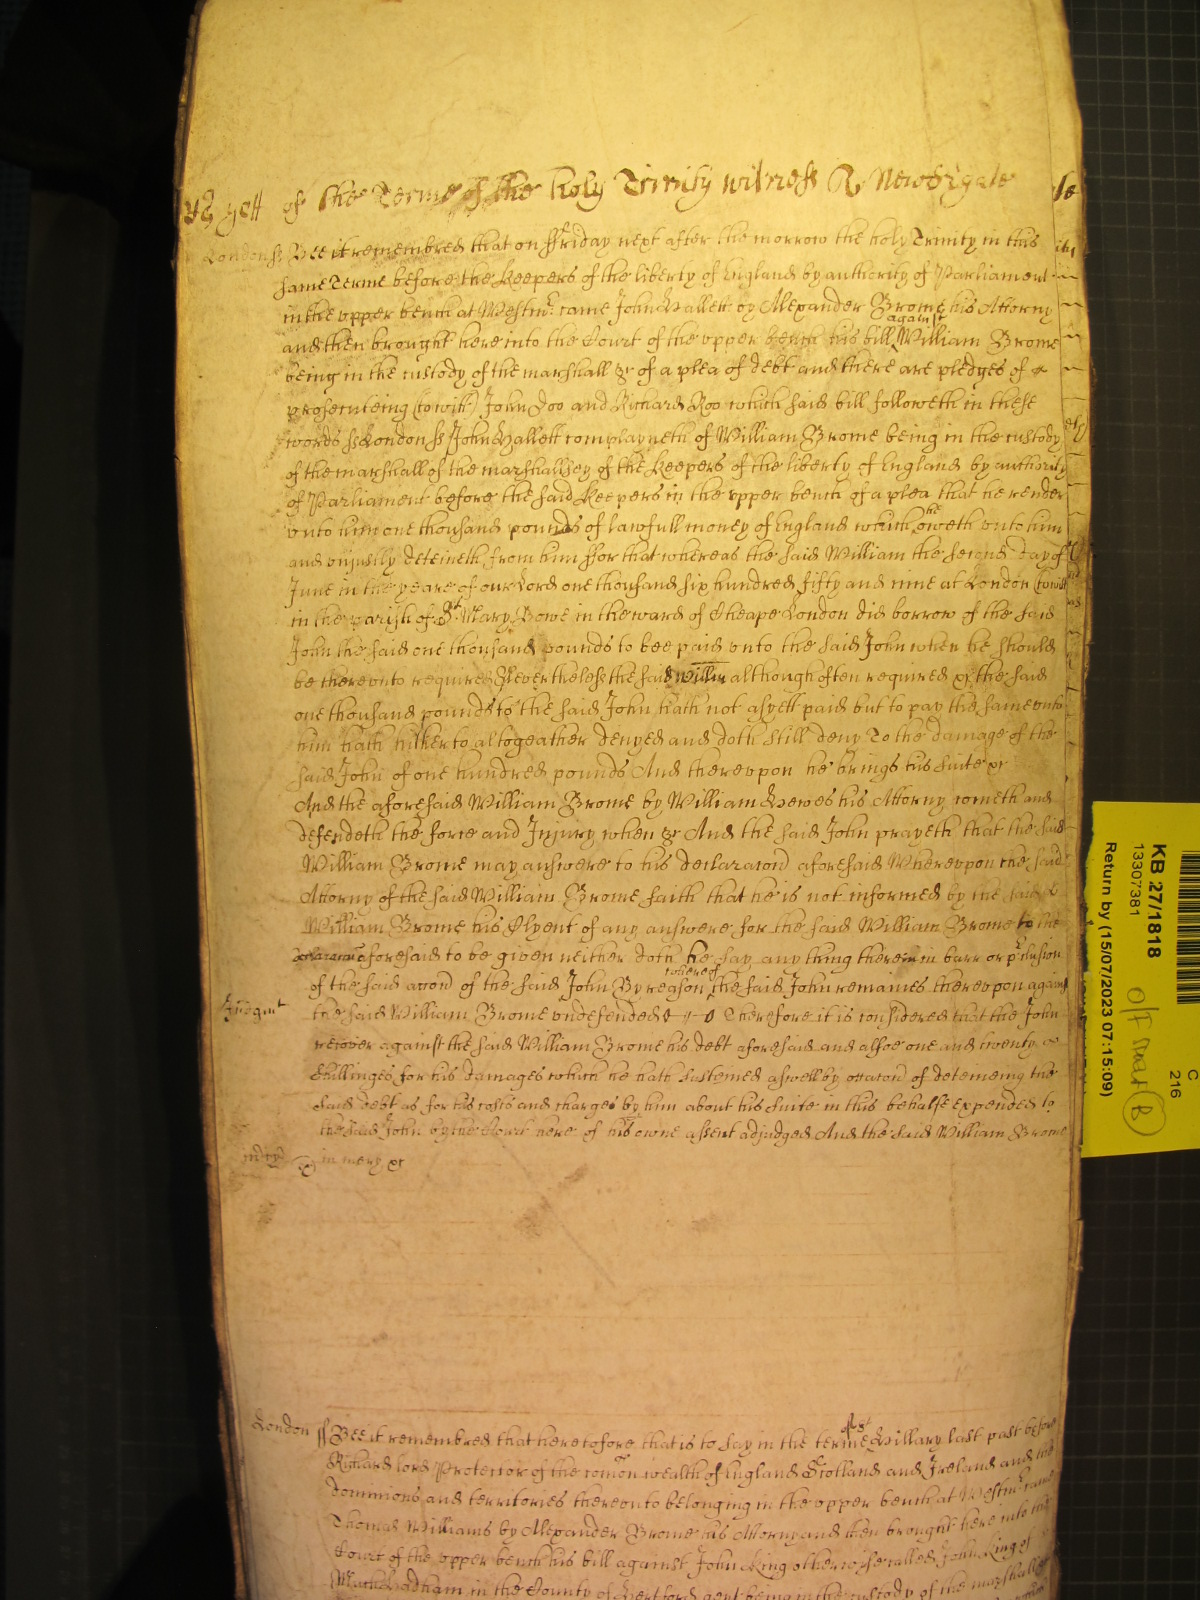 yet of the Terme of the holy Trinity witness R Newdigate
London ss Bee it remembred that on ffriday next after the morrow the holy Trinity in this
same Terme before the Keepers of the liberty of England by authority of Parliament
in the vpper bench at Westmr. came John Hallett by Alexander Brome his Attorny
and then brought here into the Court of the vpper bench his bill against William Brome
being in the custody of the marshall &c of a plea of debt and there are pledges of
prosecuteing (to witt) John Doo and Richard Roo which said bill followeth in these
words ss London ss John Hallett complayneth of William Brome being in the custody
of the marshall of the marshallsey of the Keepers of the liberty of England by authority
of Parliament before the said Keepers in the vpper bench of a plea that he render
vnto him one thousand pounds of lawfull money of England which he oweth vnto him
and vniustly deteineth from him ffor that whereas the said William the second day of
June in the yeare of our Lord one thousand six hundred fifty and nine at London (to witt
in the parish of St Mary Bowe in the ward of Cheape London did borrow of the said
John the said one thousand pounds to bee paid vnto the said John when he should
be therevnto required Neverthelesse the said Willm although often required &c the said
one thousand pounds to the said John hath not as yett paid but to pay the same vnto
him hath hitherto altogeather denyed and doth still deny To the damage of the
said John of one hundred pounds And therevpon he brings his suite &c
And the aforesaid William Brome by William Hewes his Attorny cometh and
defendeth the force and Injury when &c And the said John prayeth that the said
William Brome may answere to his declaracon aforesaid Wherevpon the said
Attorny of the said William Brome saith that he is not informed by the said
William Brome his Clyent of any answere for the said William Brome to the
declaracon aforesaid to be given neither doth he say any thing therein in barr or pclusion
of the said accon of the said John By reason whereof the said John remaines therevpon against
Judgmt
the said William Brome vndefended Therefore it is considered that the John
recover against the said William Brome his debt aforesaid and alsoe one and twenty
shillinges for his damages which he hath susteined aswell by occacon of deteineing the
said debt as for his costs and charges by him about his suite in this behalfe expended to
the said John by the Court here of his owne assent adjudged And the said William Brome
in mercy &c
London ss Bee it remembred that heretofore that is to say in the terme of St Hillary last past before
Richard lord Protector of the comon wealth of England Scotland and Ireland and the
dominions and territories therevnto belonging in the vpper bench at Westmr. came
Thomas Williams by Alexander Brome his Attorny and then brought here into the
Court of the vpper bench his bill against John King otherwise called John King of
Much Hadham in the County of Hertford gent being in the custody of the marshall
KB 27/1818
13307381
Return by (15/07/2023 07:15:09)
C
216